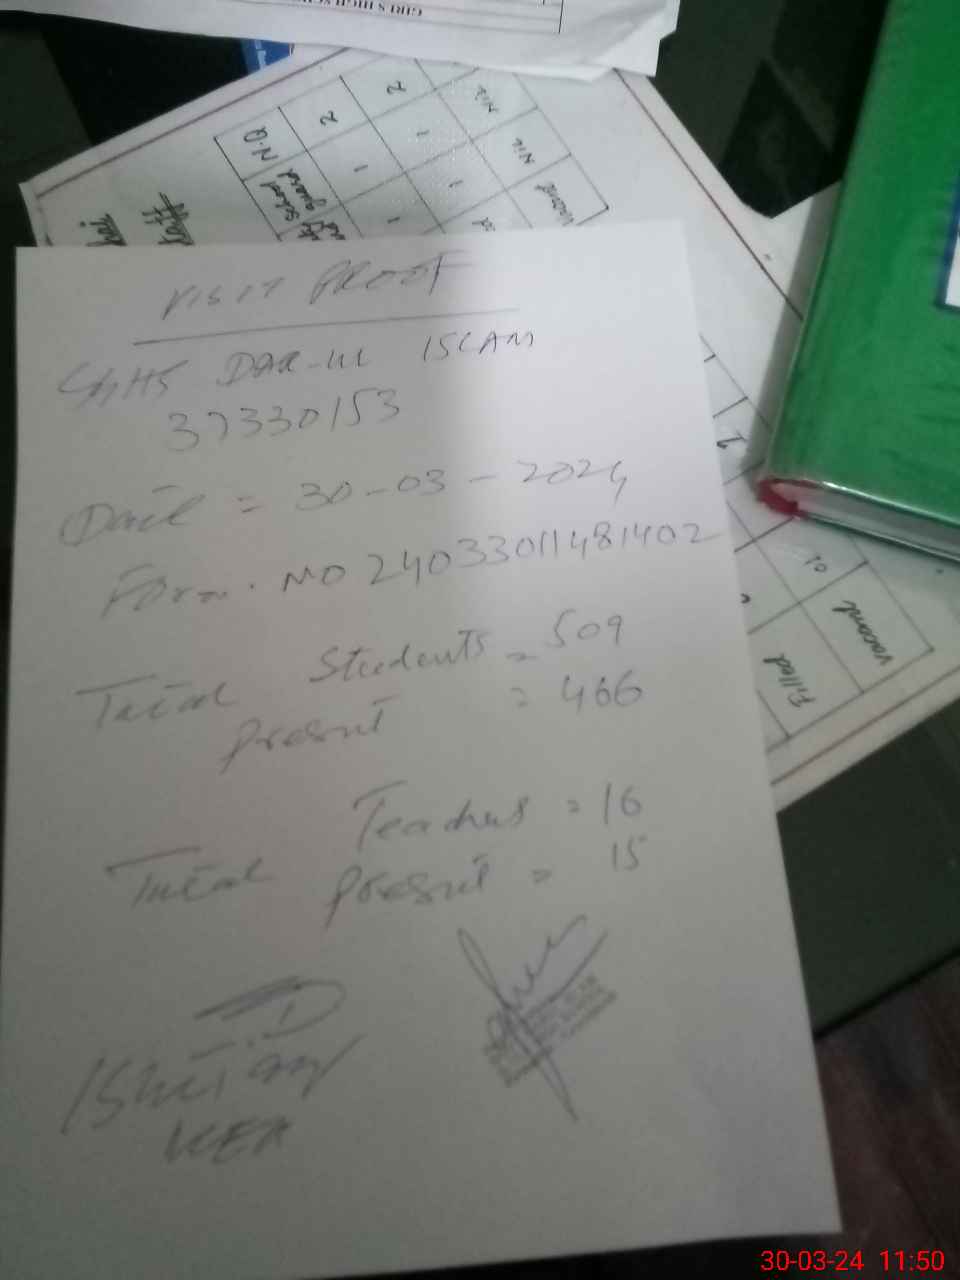 GIRLS HIGH SCH
N.Q
2
2
Nil
School
guard
1
1
Nil
1
1
vacand
Staff
VISIT PROOF
GGHS DAR-UL ISLAM
37330153
Date = 30-03-2024
Form. NO 24033011481402
Total Students = 509
present = 466
Total Teachers = 16
present = 15
Filled
vacand
01
30-03-24 11:50